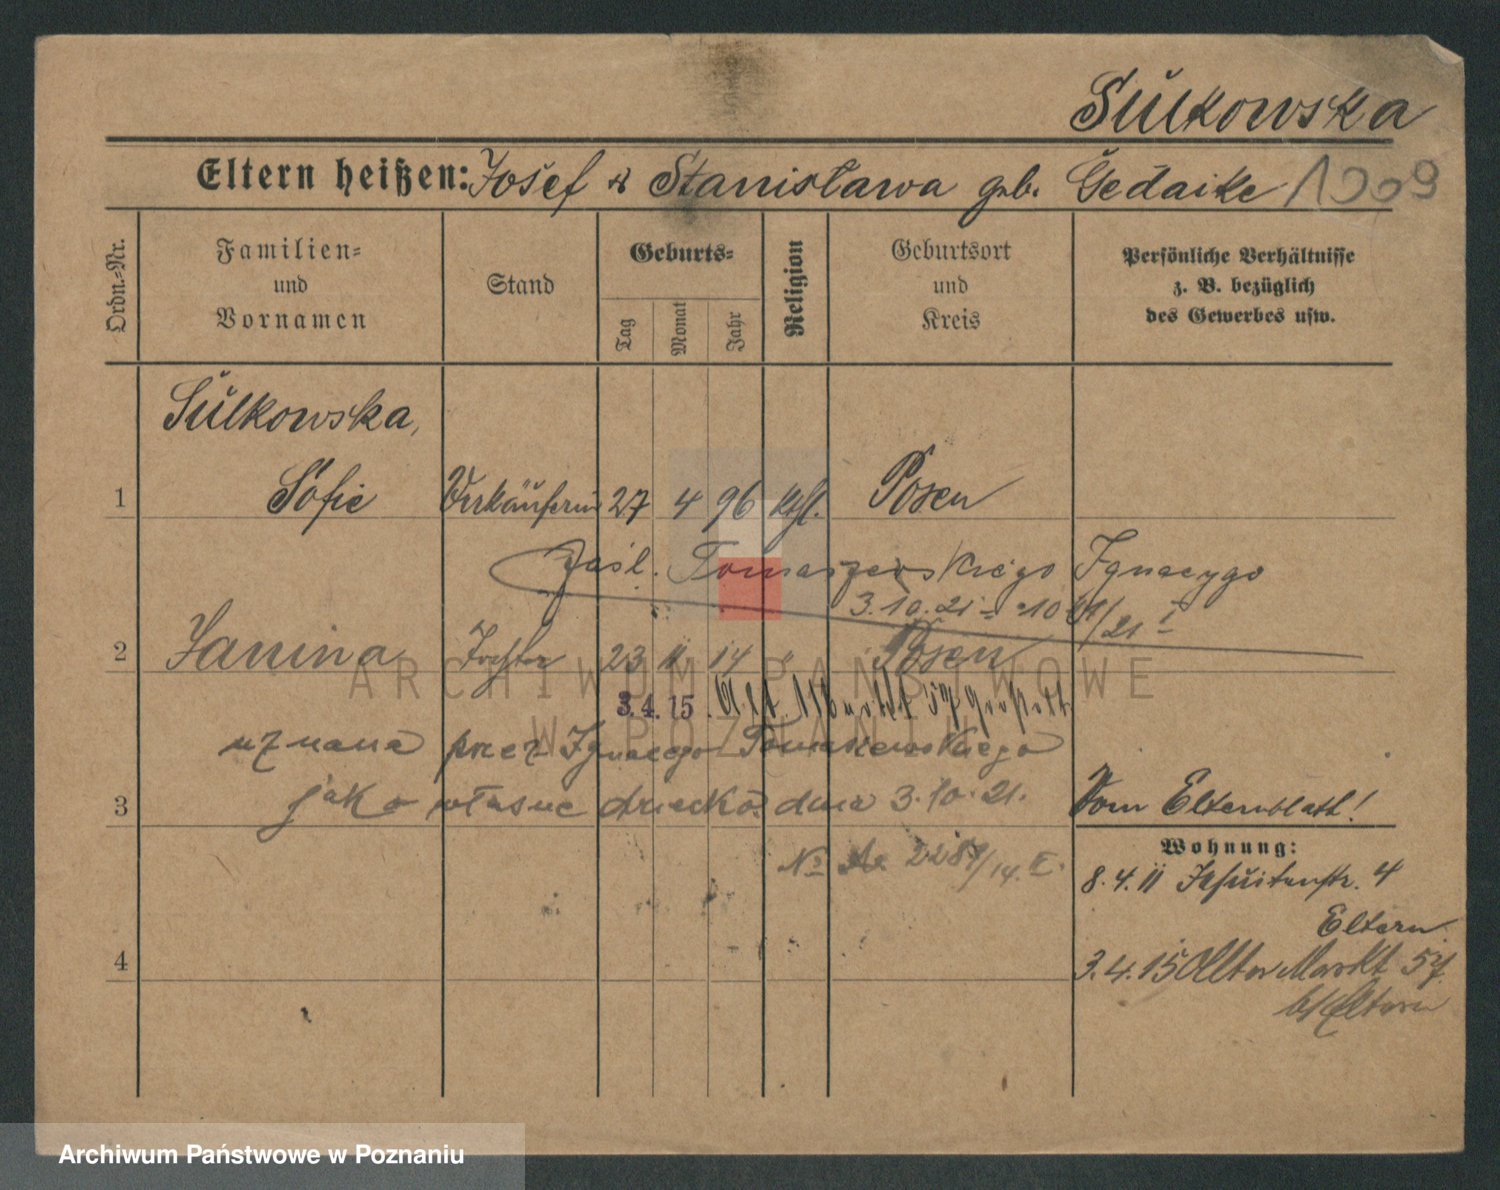 Sulkowska
Eltern heißen: Josef & Stanisława geb. Gedaike 1009
Ordn.-Nr.
Familien-
und
Vornamen
Stand
Geburts-
Tag
Monat
Jahr
Religion
Geburtsort
und
Kreis
Persönliche Verhältnisse
z. B. bezüglich
des Gewerbes usw.
Sulkowska,
1 Sofie Verkäuferin 27 4 96 kthl. Posen
zaśl. Tomaszewskiego Ignacego
3.10.21
2 Janina Tochter 23 11 14 " Posen
3.4.15.
uznana przez Ignacego Tomaszewskiego
3 jako własne dziecko dnia 3.10.21. Vom Elternblatt!
Wohnung:
No 2287/14. II.
8.4.11 Jesuitenstr. 4
Eltern
4 3.4.15 Alter Markt 57
b/Eltern
ARCHIWUM PAŃSTWOWE
W POZNANIU
Archiwum Państwowe w Poznaniu